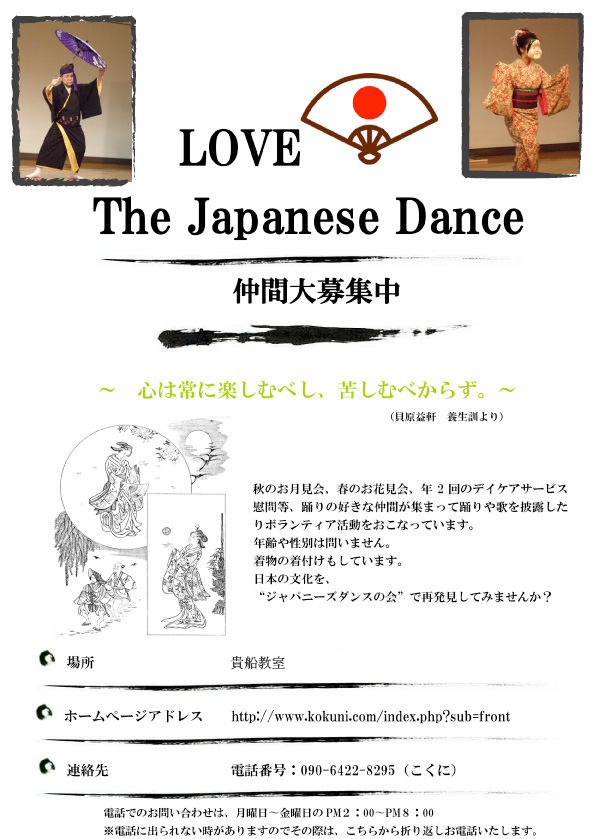 LOVE
The Japanese Dance
仲間大募集中
～　心は常に楽しむべし、苦しむべからず。～
（貝原益軒　養生訓より）
秋のお月見会、春のお花見会、年２回のデイケアサービス
慰問等、踊りの好きな仲間が集まって踊りや歌を披露した
りボランティア活動をおこなっています。
年齢や性別は問いません。
着物の着付けもしています。
日本の文化を、
“ジャパニーズダンスの会”で再発見してみませんか？
場所　貴船教室
ホームページアドレス　http://www.kokuni.com/index.php?sub=front
連絡先　電話番号：090-6422-8295（こくに）
電話でのお問い合わせは、月曜日～金曜日のＰＭ２：00～ＰＭ８：00
※電話に出られない時がありますのでその際は、こちらから折り返しお電話いたします。